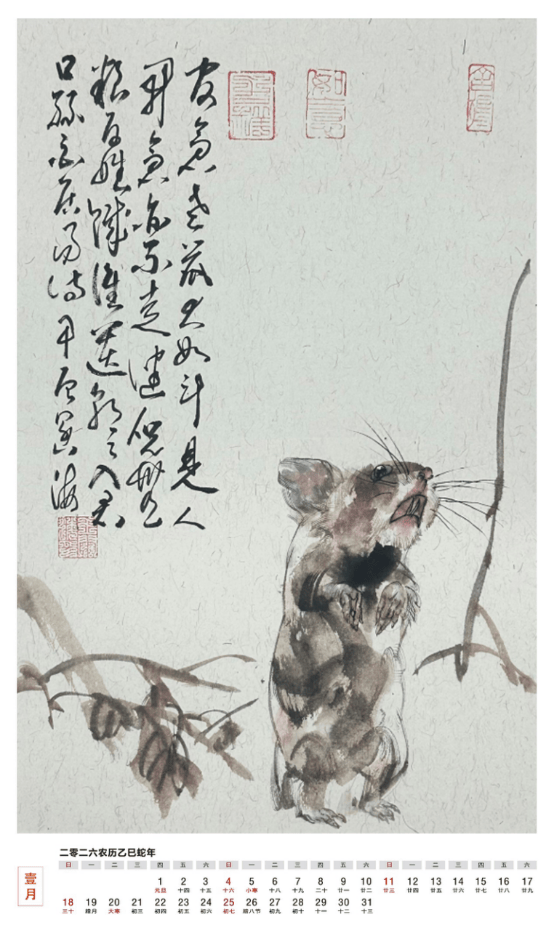 官倉老鼠大如斗見人
開倉亦不走健兒無
粮百姓饑誰遣朝之入君
口
如意
二零二六农历乙巳蛇年
壹月
日 一 二 三 四 五 六 日 一 二 三 四 五 六 日 一 二 三 四 五 六
1 2 3 4 5 6 7 8 9 10 11 12 13 14 15 16 17
元旦 十四 十五 十六 小寒 十八 十九 二十 廿一 廿二 廿三 廿四 廿五 廿六 廿七 廿八 廿九
18 19 20 21 22 23 24 25 26 27 28 29 30 31
三十 腊月 大寒 初三 初四 初五 初六 初七 腊八节 初九 初十 十一 十二 十三